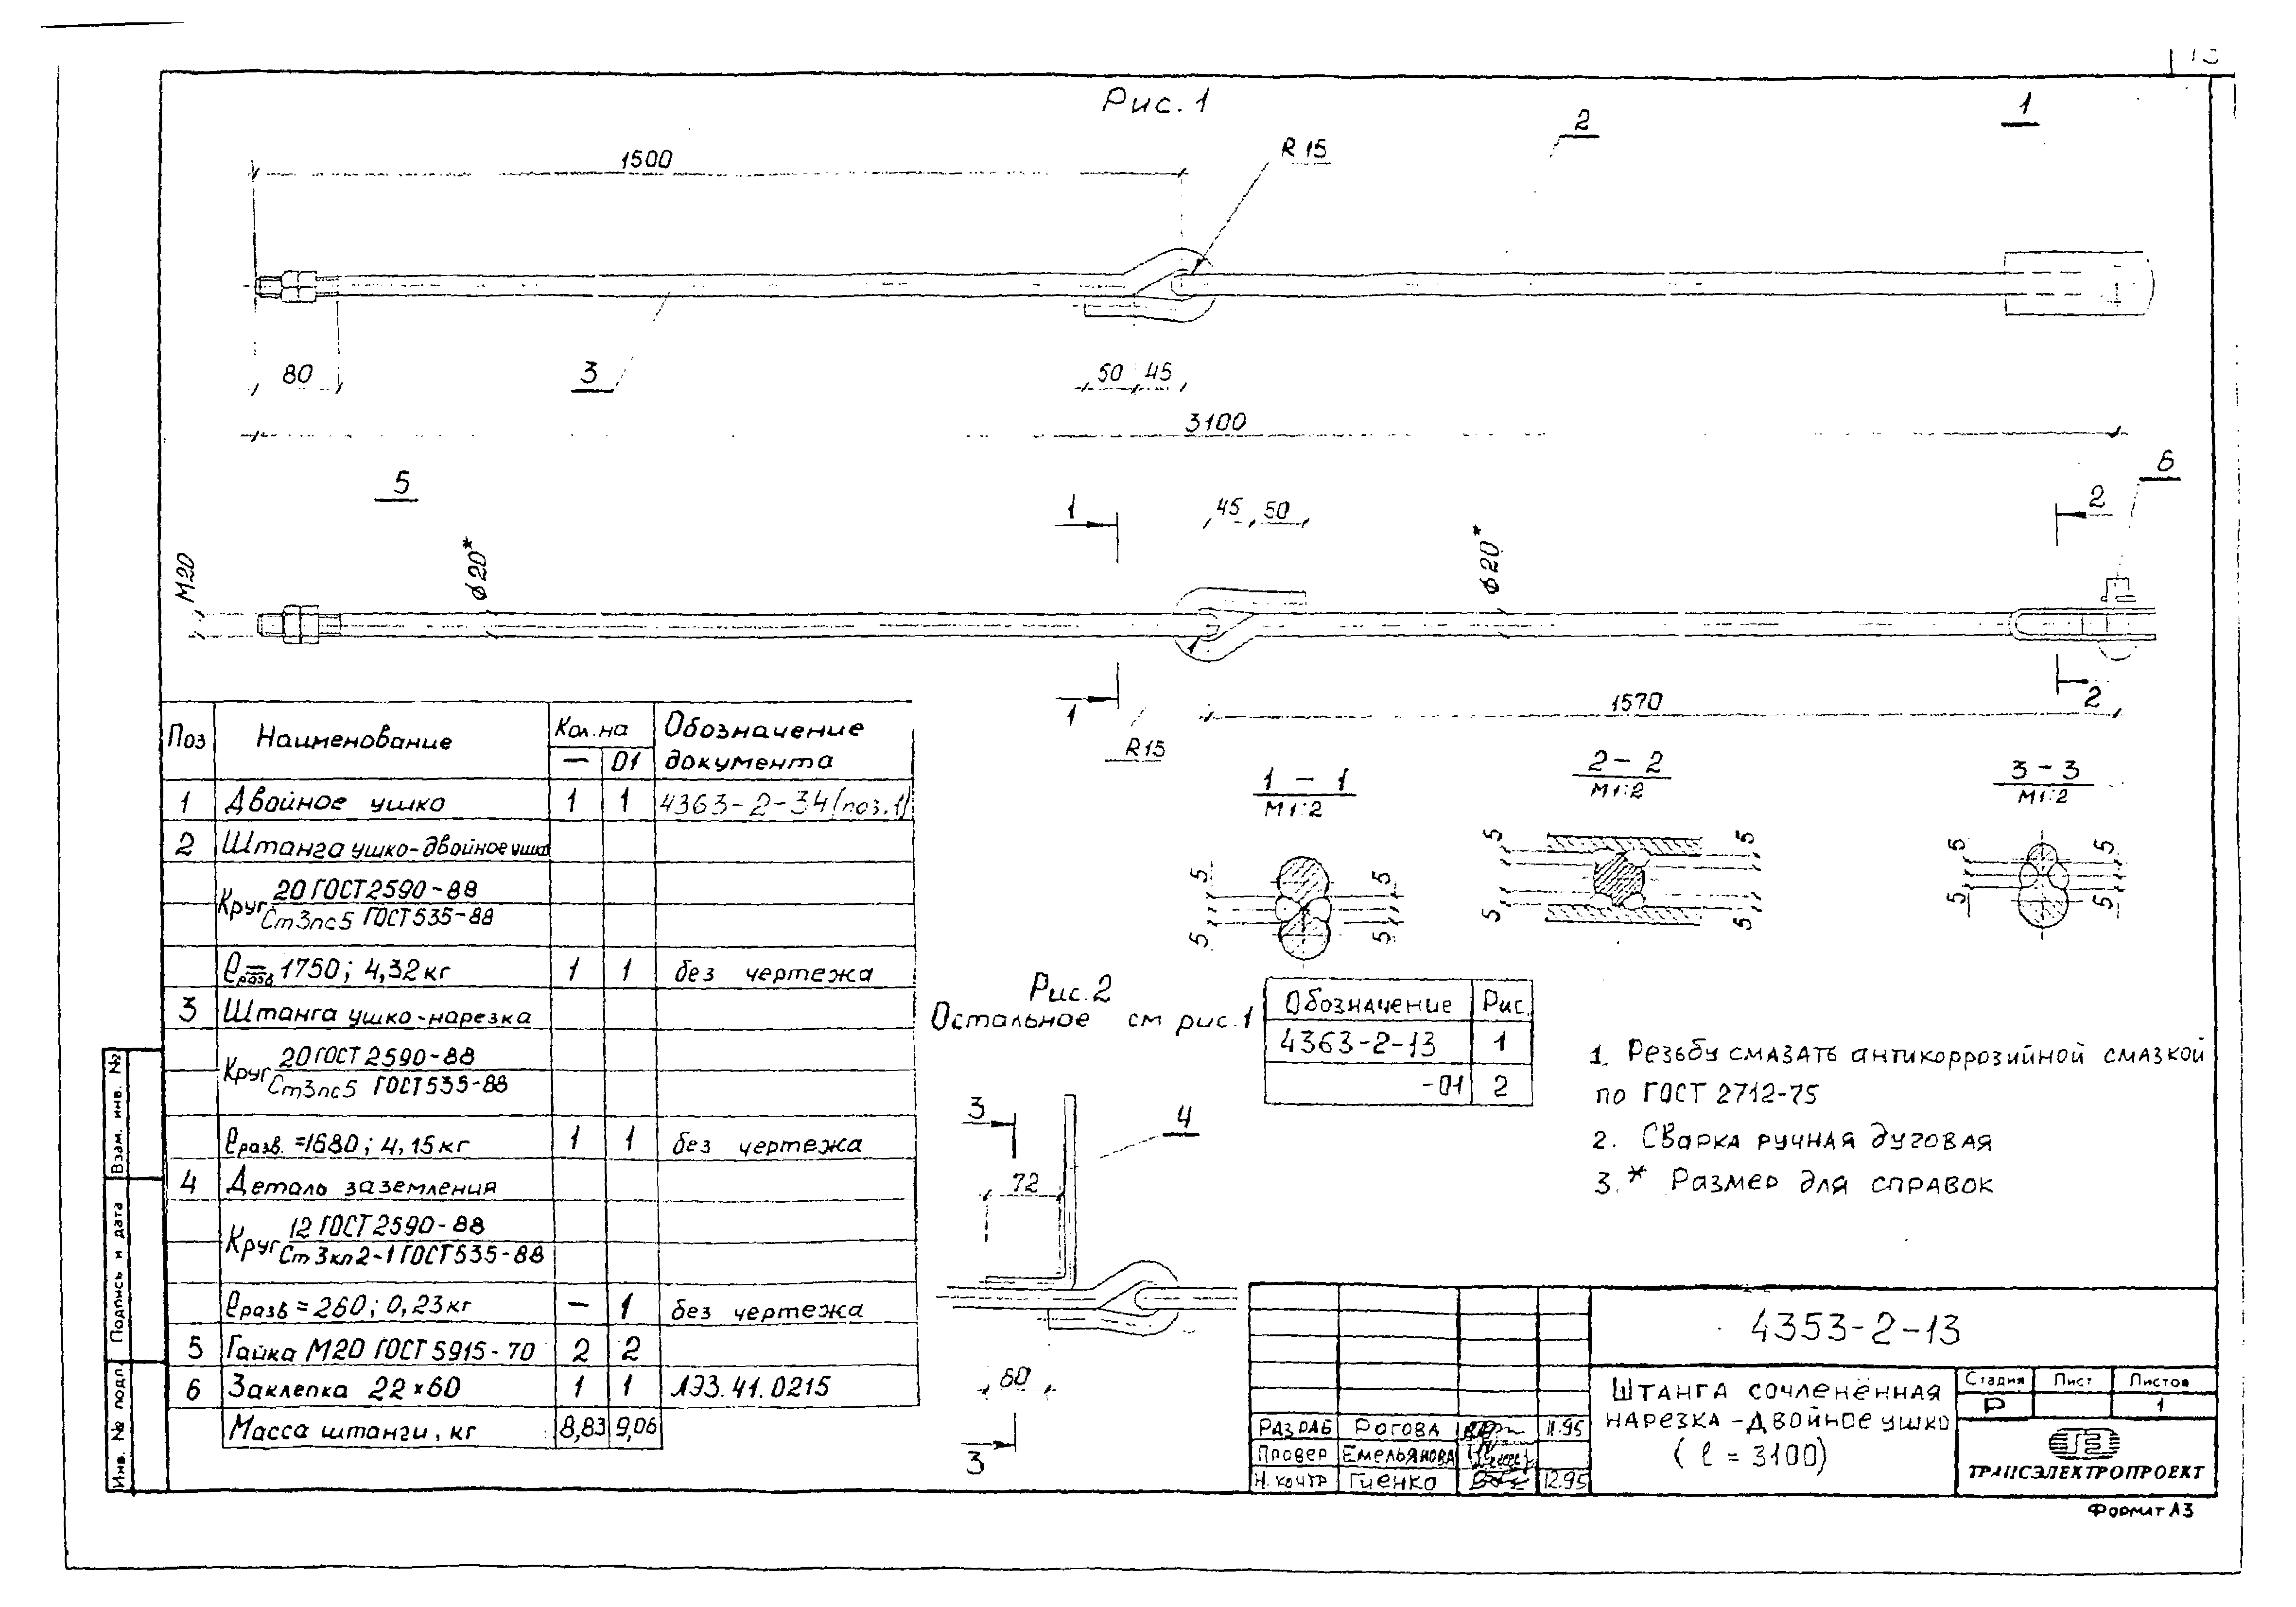 13
Рис. 1
1
2
1500
R 15
80
3
50
45
3100
5
6
1
45
50
2
М20
ø20*
ø20*
1
2
R15
1570
Поз
Наименование
Кол. на
Обозначение документа
—
01
1
Двойное ушко
1
1
4363-2-34(поз.1)
2
Штанга ушко-двойное ушко
Круг
20 ГОСТ 2590-88
Ст3пс5 ГОСТ 535-88
ℓразв = 1750; 4,32кг
1
1
без чертежа
3
Штанга ушко-нарезка
Круг
20 ГОСТ 2590-88
Ст3пс5 ГОСТ 535-88
ℓразв. =1680; 4,15кг
1
1
без чертежа
4
Деталь заземления
Круг
12 ГОСТ 2590-88
Ст 3кп2-1 ГОСТ 535-88
ℓразв = 260; 0,23кг
—
1
без чертежа
5
Гайка М20 ГОСТ 5915-70
2
2
6
Заклепка 22×60
1
1
ЛЭЗ.41.0215
Масса штанги, кг
8,83
9,06
1 - 1
М1:2
5
5
5
5
2 - 2
М1:2
5
5
5
5
3 - 3
М1:2
5
5
5
5
Рис. 2
Остальное см рис. 1
3
4
72
60
3
Обозначение
Рис.
4363-2-13
1
-01
2
1. Резьбу смазать антикоррозийной смазкой
по ГОСТ 2712-75
2. Сварка ручная дуговая
3.* Размер для справок
4353-2-13
Штанга сочлененная
нарезка-двойное ушко
(ℓ = 3100)
Стадия
Лист
Листов
Р
1
ТРАНСЭЛЕКТРОПРОЕКТ
Разраб
Рогова
11.95
Провер
Емельянова
Н. контр
Гиенко
12.95
Взам. инв. №
Подпись и дата
Инв. № подл.
Формат А3